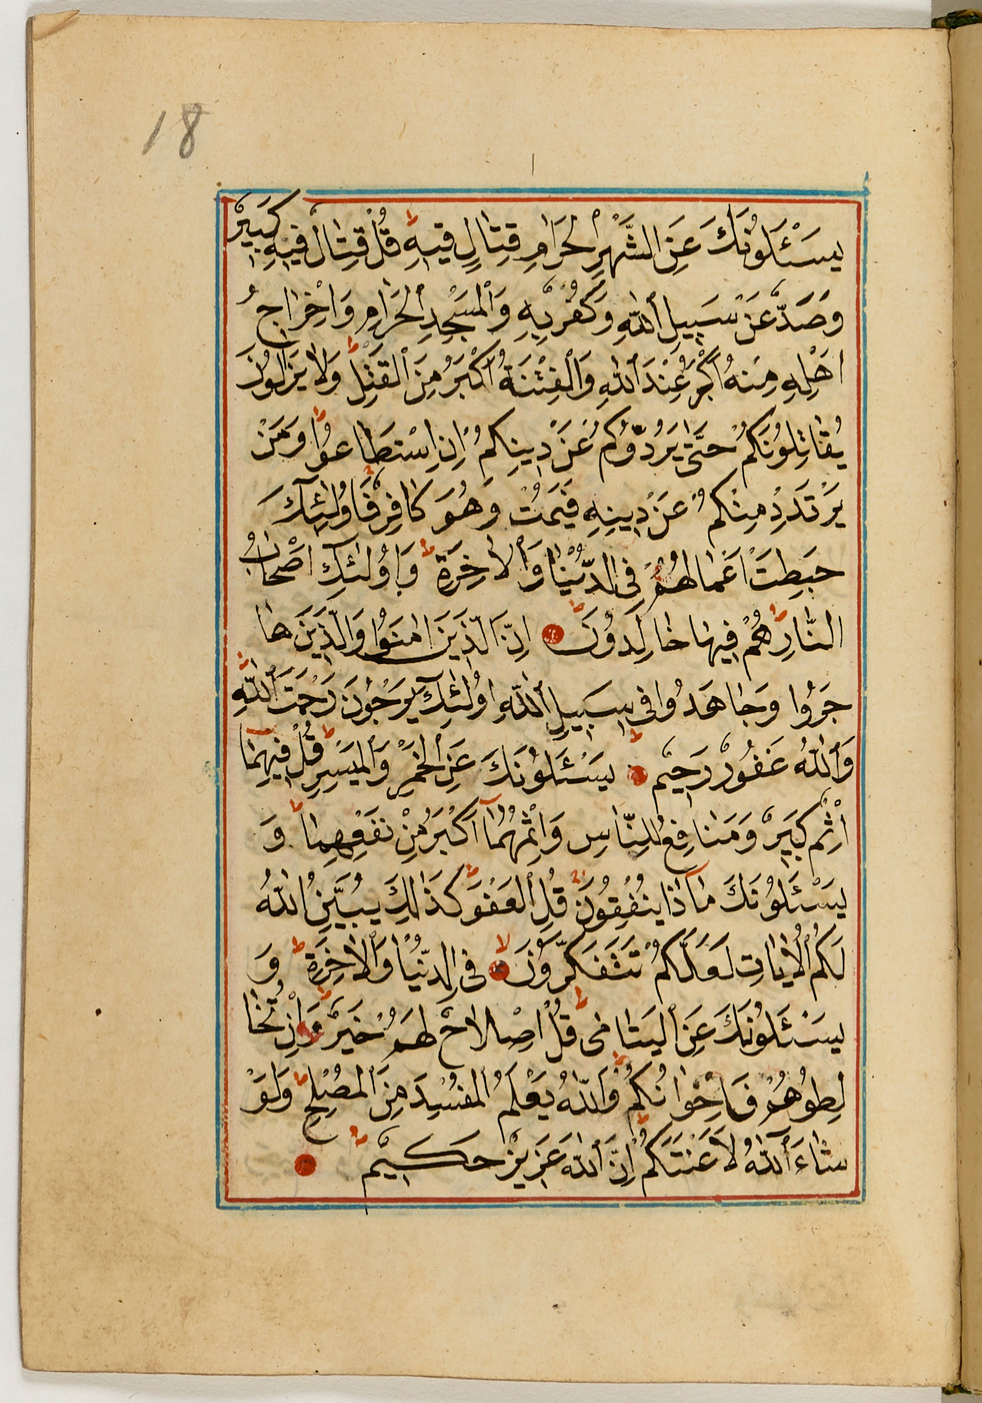 18
يَسْـَٔلُونَكَ عَنِ الشَّهْرِ الْحَرَامِ قِتَالٍ فِيهِ ط قُلْ قِتَالٌ فِيهِ كَبِيرٌ
وَصَدٌّ عَنْ سَبِيلِ اللّٰهِ وَكُفْرٌ بِهِ وَالْمَسْجِدِ الْحَرَامِ وَاِخْرَاجُ
اَهْلِهِ مِنْهُ اَكْبَرُ عِنْدَ اللّٰهِ وَالْفِتْنَةُ اَكْبَرُ مِنَ الْقَتْلِ ط وَلَا يَزَالُونَ
يُقَاتِلُونَكُمْ حَتّٰى يَرُدُّوكُمْ عَنْ دِينِكُمْ اِنِ اسْتَطَاعُوا ط وَمَنْ
يَرْتَدِدْ مِنْكُمْ عَنْ دِينِهِ فَيَمُتْ وَهُوَ كَافِرٌ فَاُولٰئِكَ
حَبِطَتْ اَعْمَالُهُمْ فِى الدُّنْيَا وَالْاٰخِرَةِ ط وَاُولٰئِكَ اَصْحَابُ
النَّارِ ط هُمْ فِيهَا خَالِدُونَ ط اِنَّ الَّذِينَ اٰمَنُوا وَالَّذِينَ هَا
جَرُوا وَجَاهَدُوا فِى سَبِيلِ اللّٰهِ اُولٰئِكَ يَرْجُونَ رَحْمَتَ اللّٰهِ ط
وَاللّٰهُ غَفُورٌ رَحِيمٌ ط يَسْـَٔلُونَكَ عَنِ الْخَمْرِ وَالْمَيْسِرِ ط قُلْ فِيهِمَا
اِثْمٌ كَبِيرٌ وَمَنَافِعُ لِلنَّاسِ وَاِثْمُهُمَا اَكْبَرُ مِنْ نَفْعِهِمَا ط وَ
يَسْـَٔلُونَكَ مَاذَا يُنْفِقُونَ قُلِ الْعَفْوَ ط كَذٰلِكَ يُبَيِّنُ اللّٰهُ
لَكُمُ الْاٰيَاتِ لَعَلَّكُمْ تَتَفَكَّرُونَ لا فِى الدُّنْيَا وَالْاٰخِرَةِ ط وَ
يَسْـَٔلُونَكَ عَنِ الْيَتَامٰى ط قُلْ اِصْلَاحٌ لَهُمْ خَيْرٌ ط وَاِنْ تُخَا
لِطُوهُمْ فَاِخْوَانُكُمْ ط وَاللّٰهُ يَعْلَمُ الْمُفْسِدَ مِنَ الْمُصْلِحِ ط وَلَوْ
شَاءَ اللّٰهُ لَاَعْنَتَكُمْ ط اِنَّ اللّٰهَ عَزِيزٌ حَكِيمٌ ط